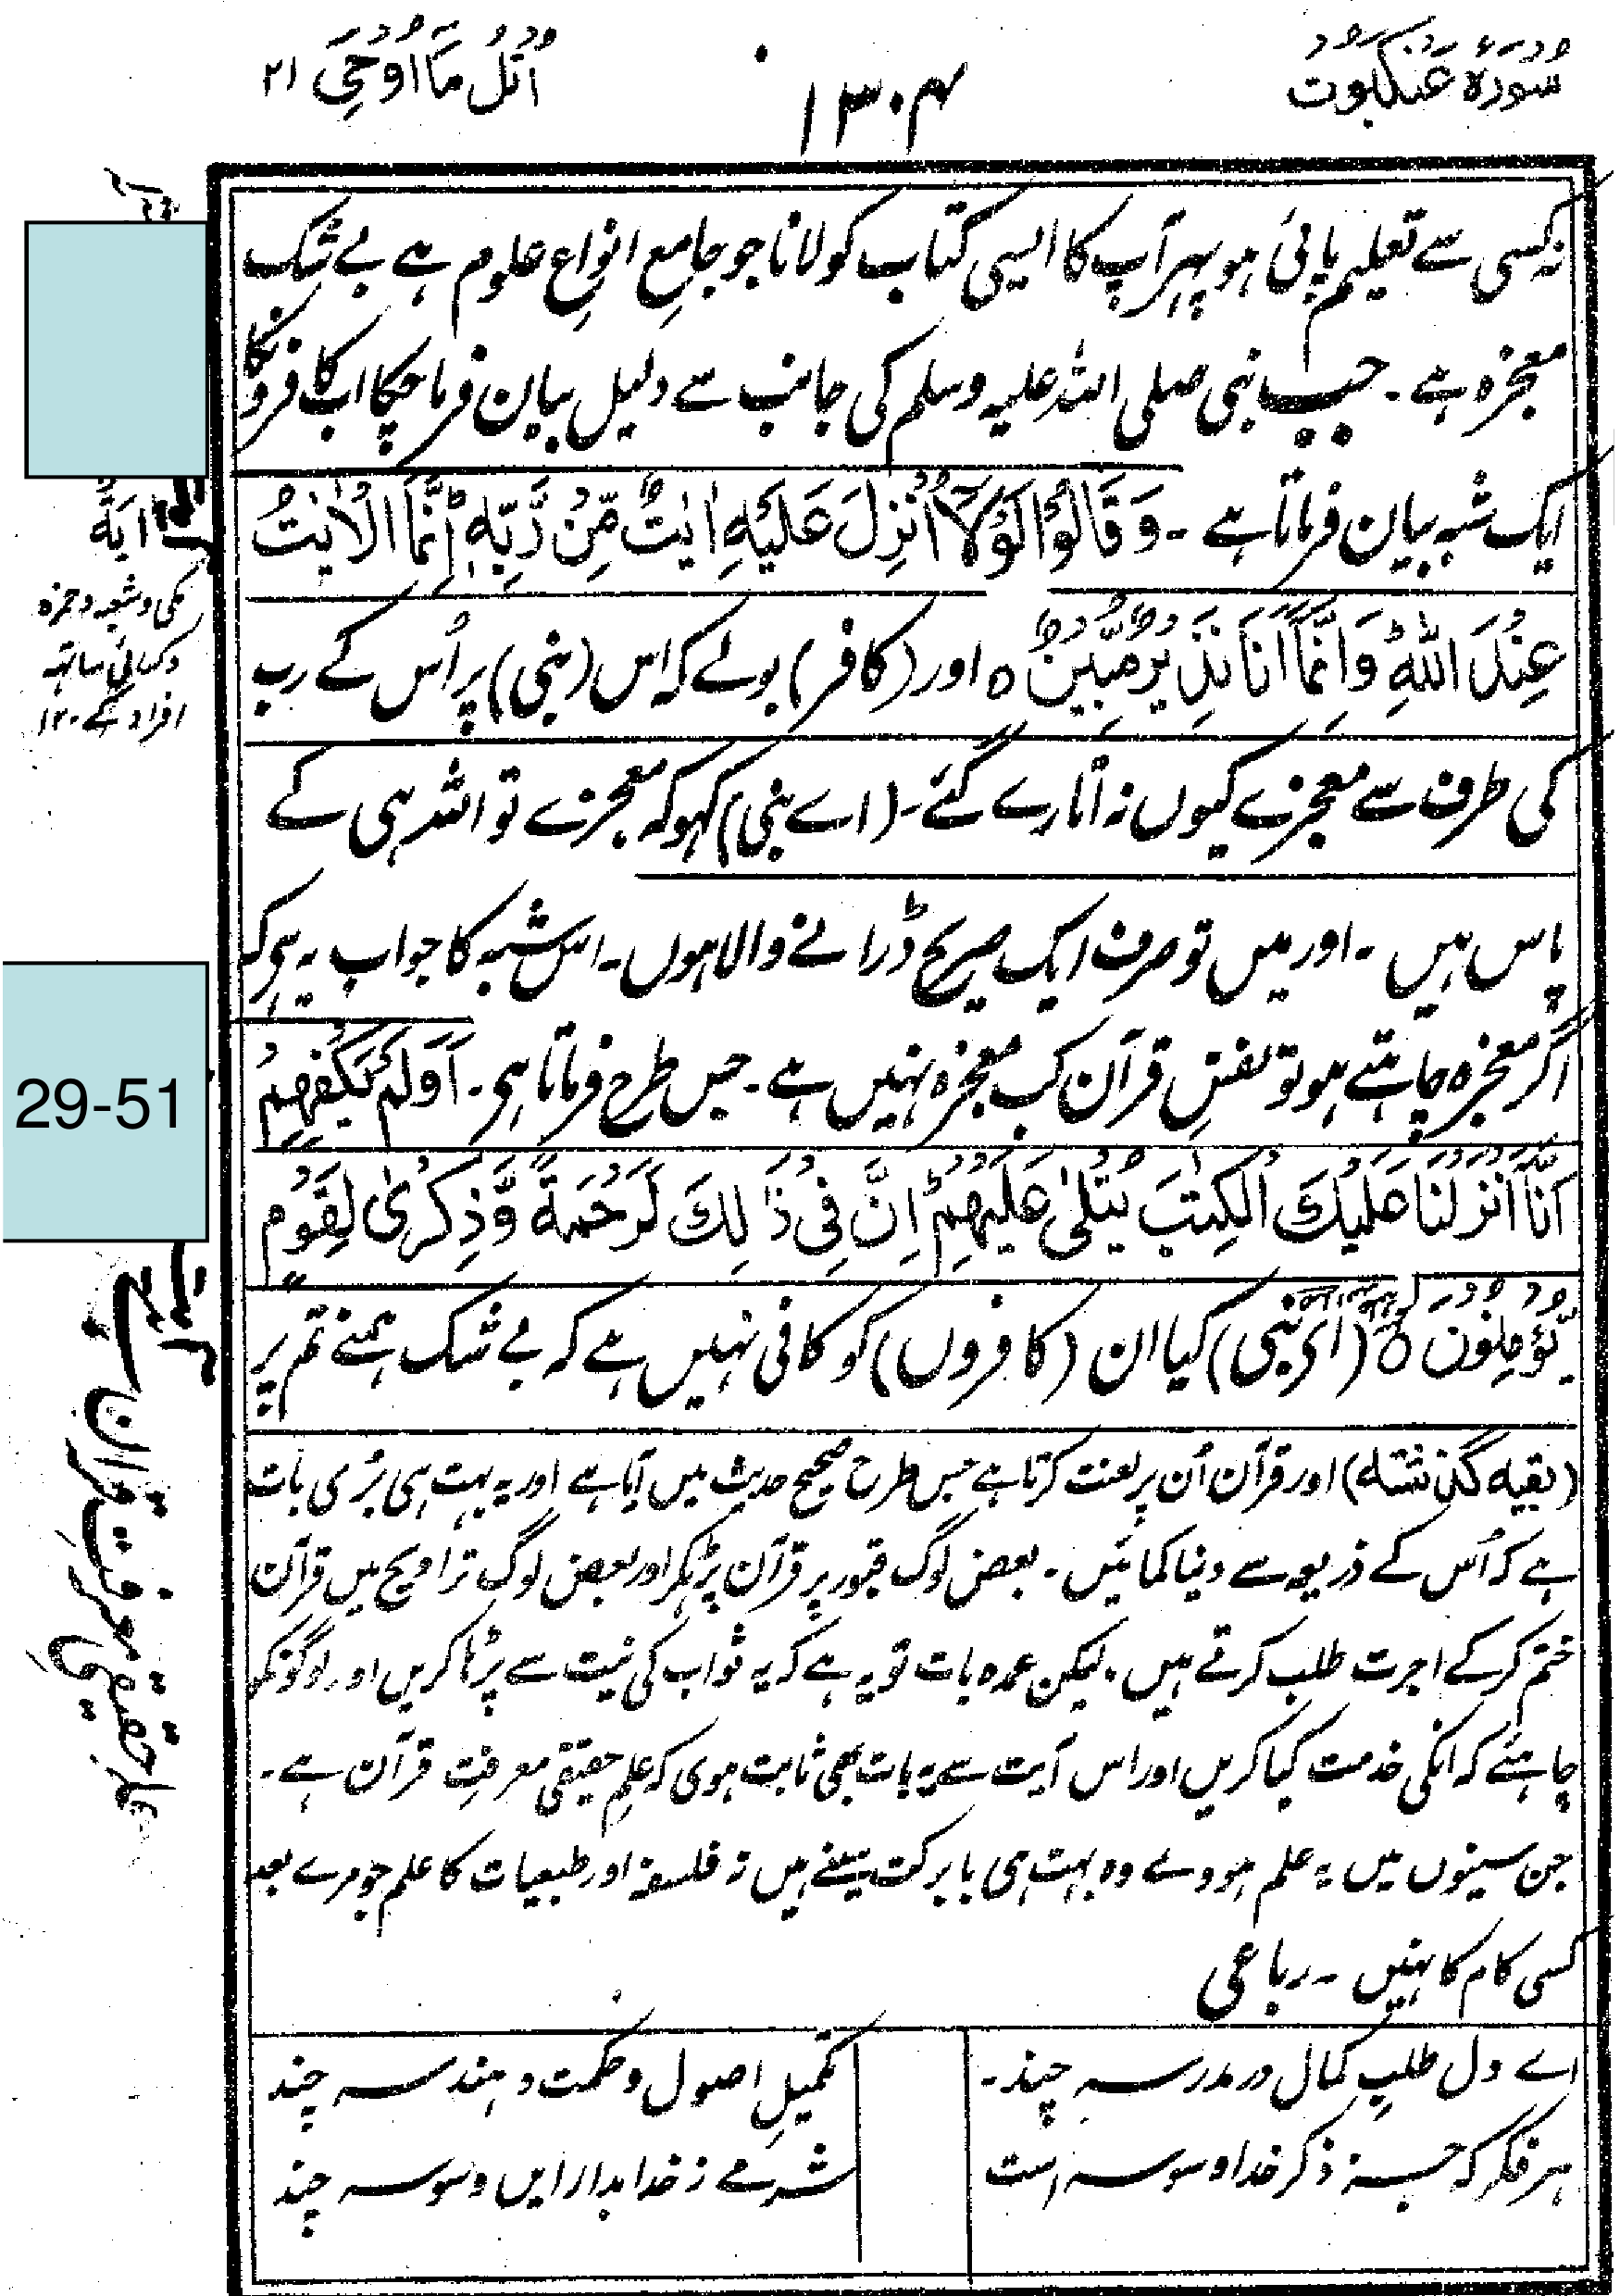 سُوْرَۃُ عَنْکَبُوْت
۱۳۰۴
اُتْلُ مَآ اُوْحِیَ ۲۱
نہ کسی سے تعلیم پائی ہو پہر آپ کا ایسی کتاب کو لانا جو جامعِ انواعِ علوم ہے بے شک
معجزہ ہے ۔ جب نبی صلی اللہ علیہ وسلم کی جانب سے دلیل بیان فرما چکا اب کافرونکا
ایک شبہ بیان فرماتا ہے ۔ وَقَالُوْا لَوْلَآ اُنْزِلَ عَلَيْهِ اٰيٰتٌ مِّنْ رَّبِّهٖ ؕ اِنَّمَا الْاٰيٰتُ
عِنْدَ اللّٰهِ ؕ وَاِنَّمَآ اَنَا نَذِيْرٌ مُّبِيْنٌ ٥ اور (کافر) بولے کہ اس (نبی) پر اُس کے رب
کی طرف سے معجزے کیوں نہ اُتارے گئے ۔ (اے نبی) کہو کہ معجزے تو اللہ ہی کے
پاس ہیں ۔ اور میں تو صرف ایک صریح ڈرانے والا ہوں ۔ اس شبہ کا جواب یہ ہی کہ
اگر معجزہ چاہتے ہو تو نفسِ قرآن کب معجزہ نہیں ہے ۔ جس طرح فرماتا ہی ۔ اَوَلَمْ يَكْفِهِمْ
اَنَّآ اَنْزَلْنَا عَلَيْكَ الْكِتٰبَ يُتْلٰى عَلَيْهِمْ ؕ اِنَّ فِيْ ذٰلِكَ لَرَحْمَةً وَّذِكْرٰى لِقَوْمٍ
يُّؤْمِنُوْنَ ٥ (ای نبی) کیا ان (کافروں) کو کافی نہیں ہے کہ بے شک ہمنے تم پر
(بقیہ گذشتہ) اور قرآن اُن پر لعنت کرتا ہے جس طرح صحیح حدیث میں آیا ہے اور یہ بہت ہی بُری بات
ہے کہ اُس کے ذریعہ سے دنیا کمائیں ۔ بعض لوگ قبور پر قرآن پڑہکر اور بعض لوگ تراویح میں قرآن
ختم کر کے اجرت طلب کرتے ہیں ۔ لیکن عمدہ بات تو یہ ہے کہ یہ ثواب کی نیت سے پڑہا کریں اور لوگونکو
چاہئے کہ انکی خدمت کیا کریں اور اس آیت سے یہ بات بھی ثابت ہوی کہ علمِ حقیقی معرفتِ قرآن ہے ۔
جن سینوں میں یہ علم ہووے وہ بہت ہی بابرکت سینے ہیں نہ فلسفہ اور طبعیات کا علم جو مرے بعد
کسی کام کا نہیں ۔ رباعی
اے دل طلبِ کمال در مدرسہ چند ۔ تکمیلِ اصول و حکمت و ہندسہ چند
ہر فکر کہ جسز ذکر خدا وسوسہ است شرمے ز خدا بدار ایں وسوسہ چند
اٰیَةٌ
مکی و شعبہ و حمزہ
و کسائی ساتھ
افراد کے ۱۲۰
29-51
علمِ حقیقی معرفتِ قرآن ہے